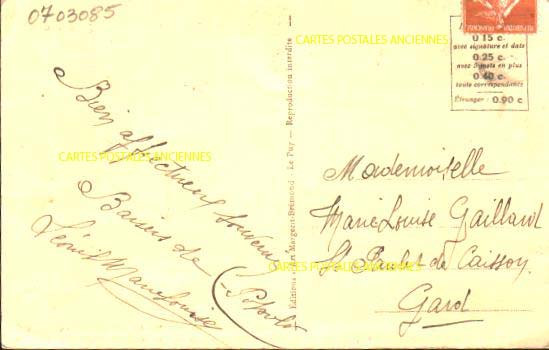 0703085
CARTES POSTALES ANCIENNES
0.15 c.
avec signature et date
0.25 c.
avec 5 mots en plus
0.40 c.
toute correspondance
Étranger : 0.90 c
Bien affectueux souvenir
CARTES POSTALES ANCIENNES
Baisers de
Marie Louise
Editions Margerit-Brémond - Le Puy - Reproduction interdite
Mademoiselle
Marie Louise Gaillard
St Paulet de Caisson
CARTES POSTALES ANCIENNES
Gard